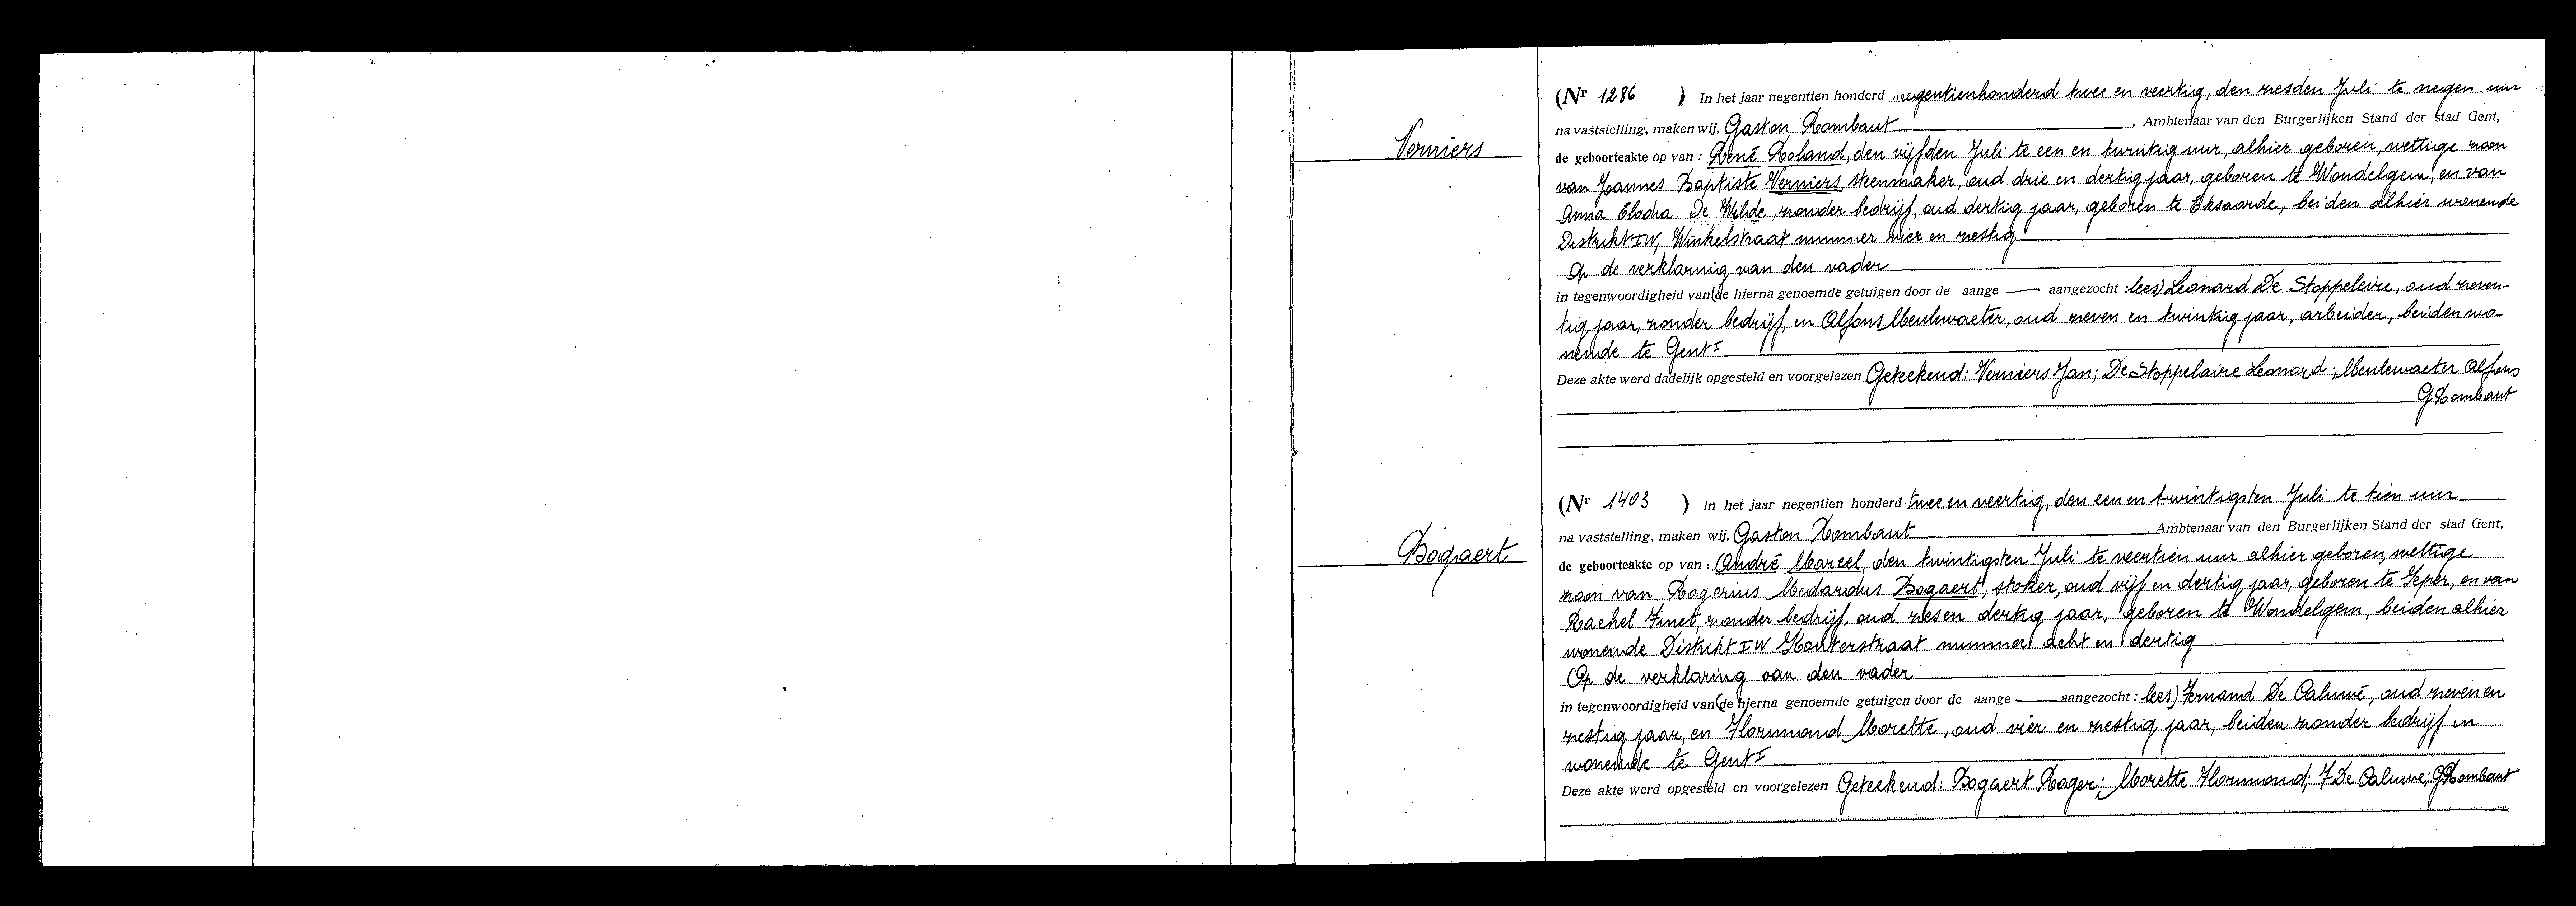 Verniers
(Nr 1286 ) In het jaar negentien honderd negentienhonderd twee en veertig, den zesden Juli te negen uur
na vaststelling, maken wij, Gaston Rombaut, Ambtenaar van den Burgerlijken Stand der stad Gent,
de geboorteakte op van : René Roland, den vijfden Juli te een en twintig uur, alhier geboren, wettige zoon
van Joannes Baptiste Verniers, steenmaker, oud drie en dertig jaar, geboren te Wondelgem, en van
Anna Elodia De Wilde, zonder bedrijf, oud dertig jaar, geboren te Eksaarde, beiden alhier wonende
Distrikt IW, Winkelstraat nummer vier en zestig
Op de verklaring van den vader
in tegenwoordigheid van (de hierna genoemde getuigen door de aange — aangezocht : lees) Leonard De Stoppeleire, oud zeven-
tig jaar, zonder bedrijf, en Alfons Meulewaeter, oud zeven en twintig jaar, arbeider, beiden wo-
nende te Gent I
Deze akte werd dadelijk opgesteld en voorgelezen Geteekend: Verniers Jan; De Stoppelaire Leonard; Meulewaeter Alfons
G Rombaut
Bogaert
(Nr 1403 ) In het jaar negentien honderd twee en veertig, den een en twintigsten Juli te tien uur
na vaststelling, maken wij, Gaston Rombaut, Ambtenaar van den Burgerlijken Stand der stad Gent,
de geboorteakte op van : André Marcel, den twintigsten Juli te veertien uur alhier geboren, wettige
zoon van Rogerius Medardus Bogaert, stoker, oud vijf en dertig jaar, geboren te Ieper, en van
Rachel Finet, zonder bedrijf, oud zes en dertig jaar, geboren te Wondelgem, beiden alhier
wonende Distrikt IW Houterstraat nummer acht en dertig
Op de verklaring van den vader
in tegenwoordigheid van (de hierna genoemde getuigen door de aange — aangezocht : lees) Fernand De Caluwé, oud zeven en
zestig jaar, en Florimond Morette, oud vier en zestig jaar, beiden zonder bedrijf en
wonende te Gent I
Deze akte werd opgesteld en voorgelezen Geteekend: Bogaert Roger; Morette Florimond; F De Caluwe; G Rombaut